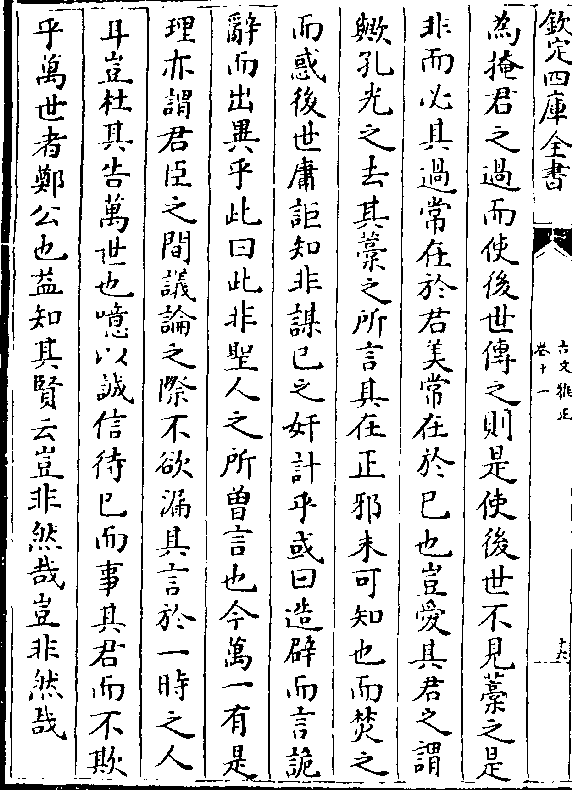 欽定四庫全書
古文雅正
卷十一
十六
為掩君之過而使後世傳之則是使後世不見藁之是
非而必其過常在於君美常在於已也豈愛其君之謂
歟孔光之去其藁之所言其在正邪未可知也而焚之
而惑後世庸詎知非謀已之奸計乎或曰造辟而言詭
辭而出異乎此曰此非聖人之所曽言也今萬一有是
理亦謂君臣之間議論之際不欲漏其言於一時之人
耳豈杜其告萬世也噫以誠信待已而事其君而不欺
乎萬世者鄭公也益知其賢云豈非然哉豈非然哉